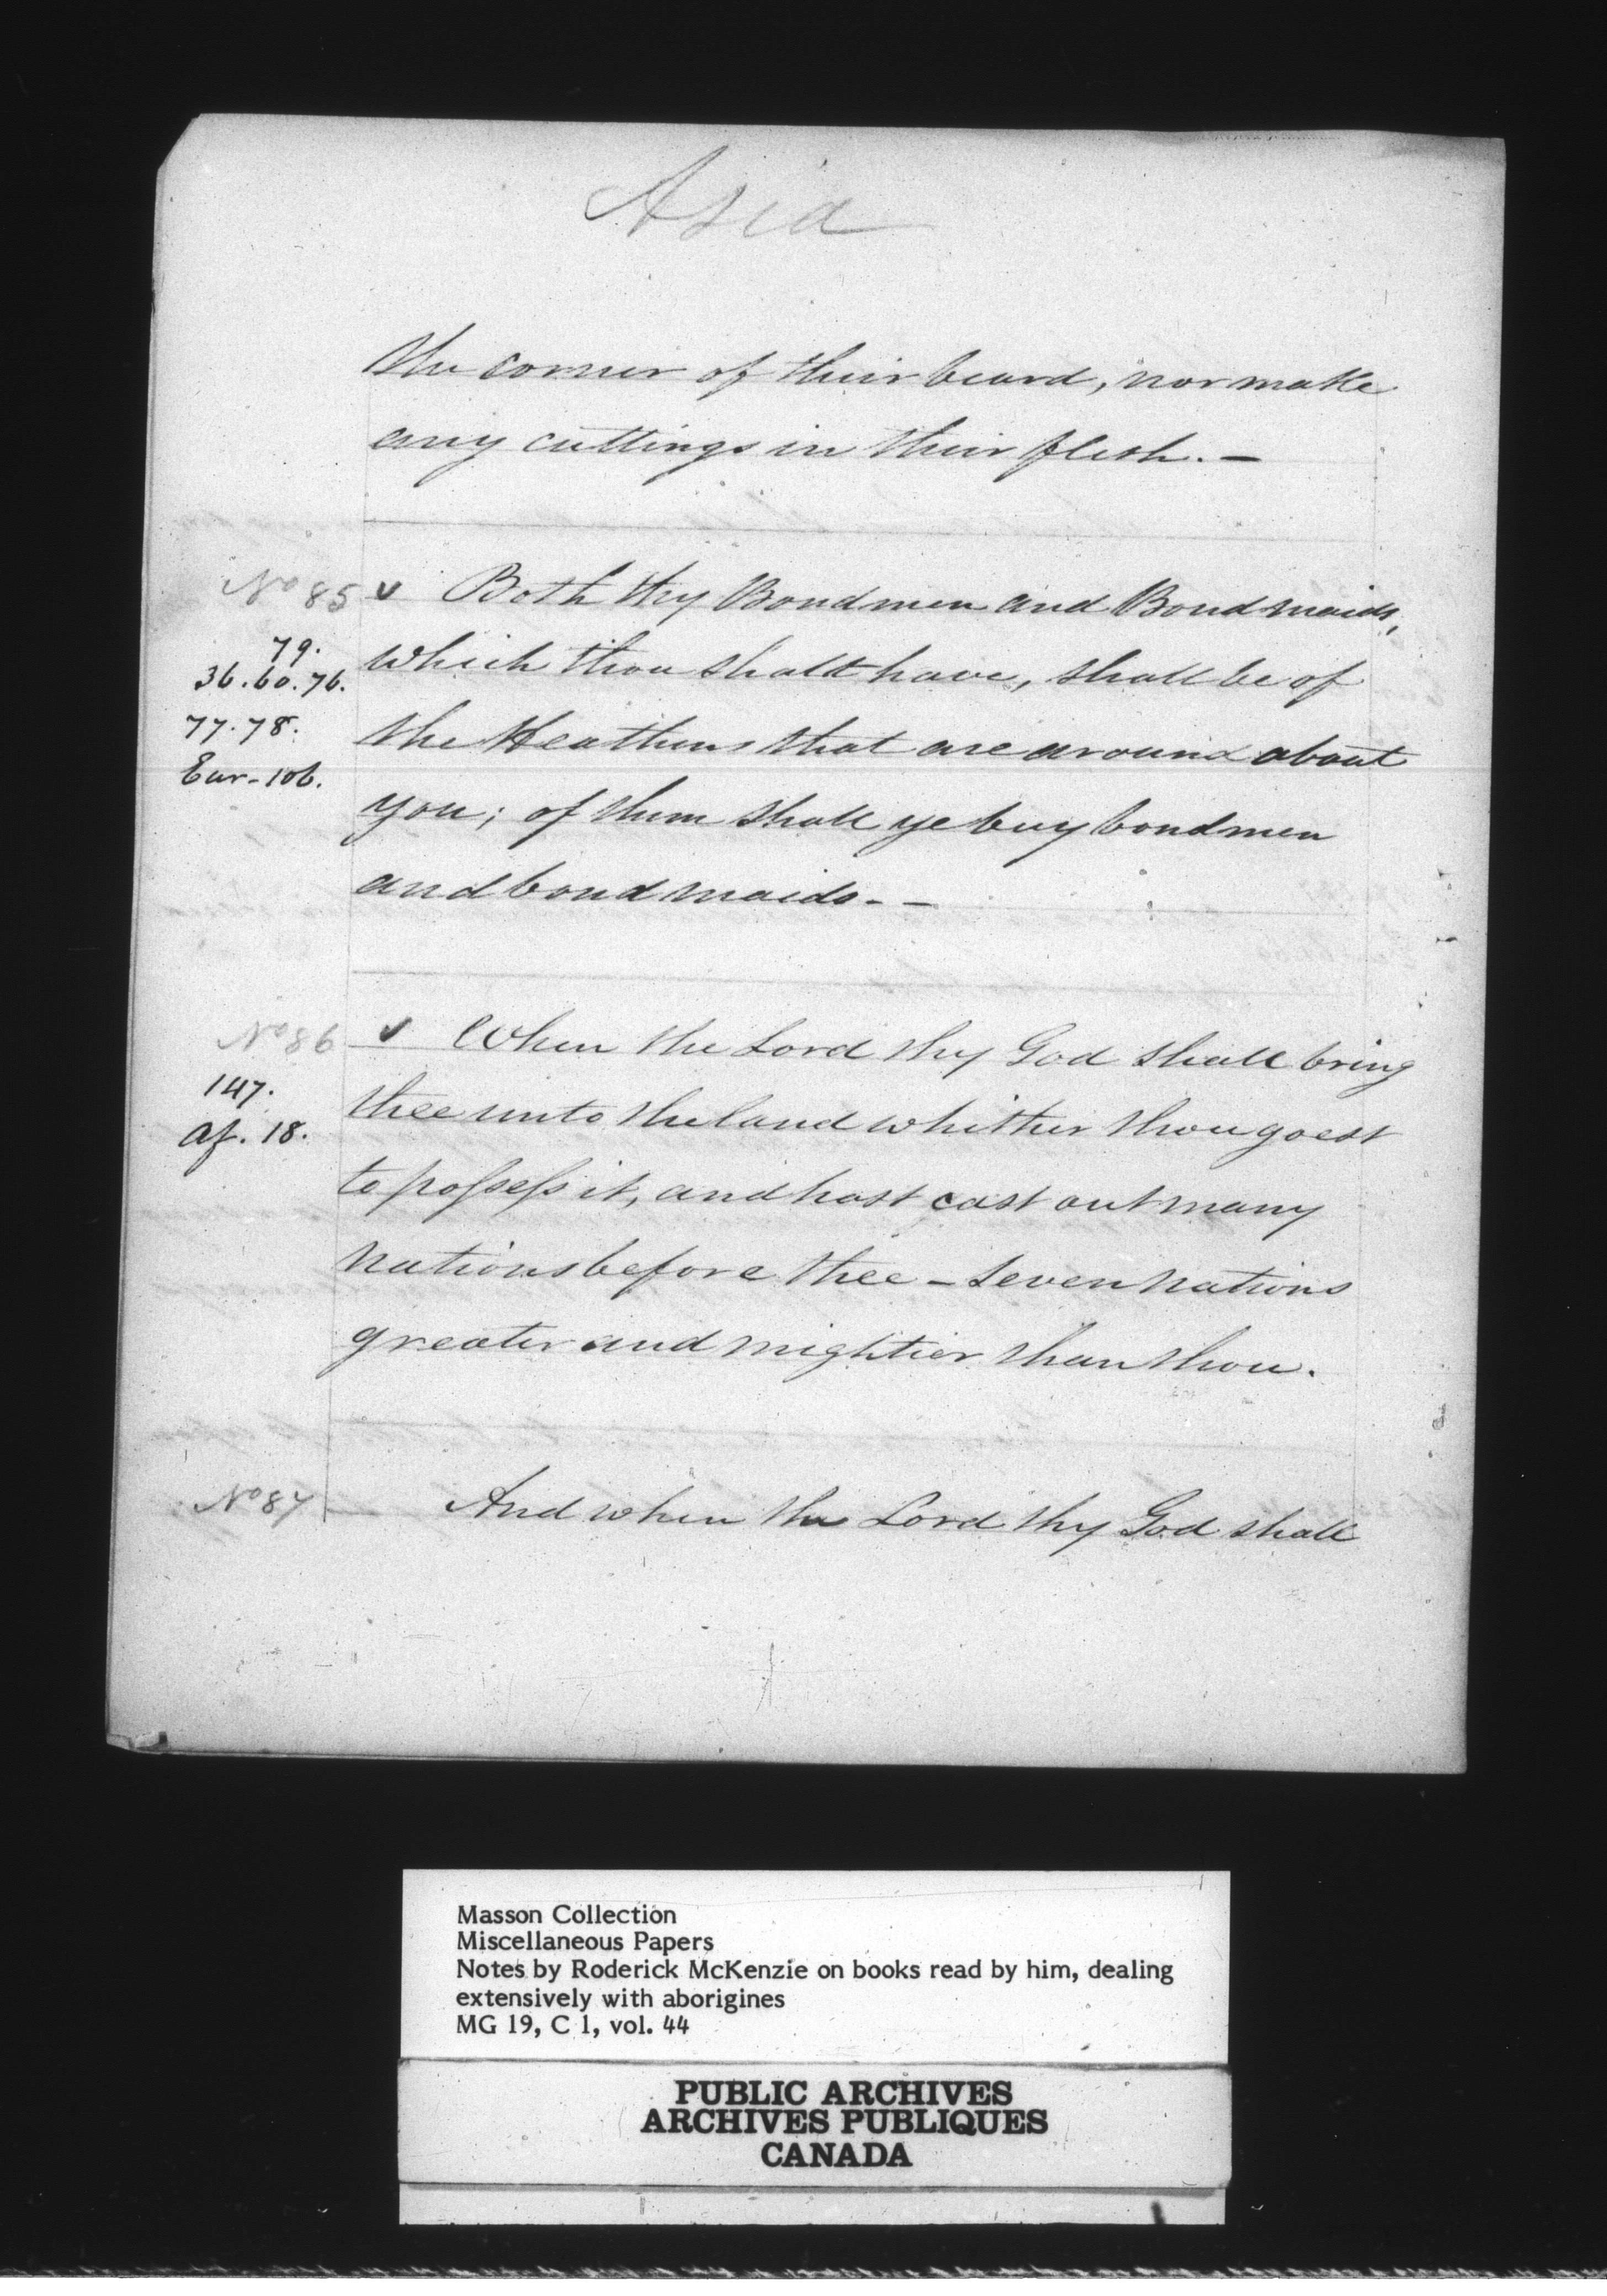 Asia
the corner of their beard, nor make
any cuttings in their flesh. —
No 85 v Both thy Bondmen and Bondmaids,
79.
36. 60. 76.
77. 78.
Eur - 106.
which thou shalt have, shall be of
the Heathens that are around about
you; of them shall ye buy bondmen
and bondmaids. —
No 86 v When the Lord thy God shall bring
147.
Af. 18.
thee unto the land whither thou goest
to possess it, and hast cast out many
nations before thee — seven nations
greater and mightier than thou.
No 87 And when the Lord thy God shall
Masson Collection
Miscellaneous Papers
Notes by Roderick McKenzie on books read by him, dealing
extensively with aborigines
MG 19, C 1, vol. 44
PUBLIC ARCHIVES
ARCHIVES PUBLIQUES
CANADA